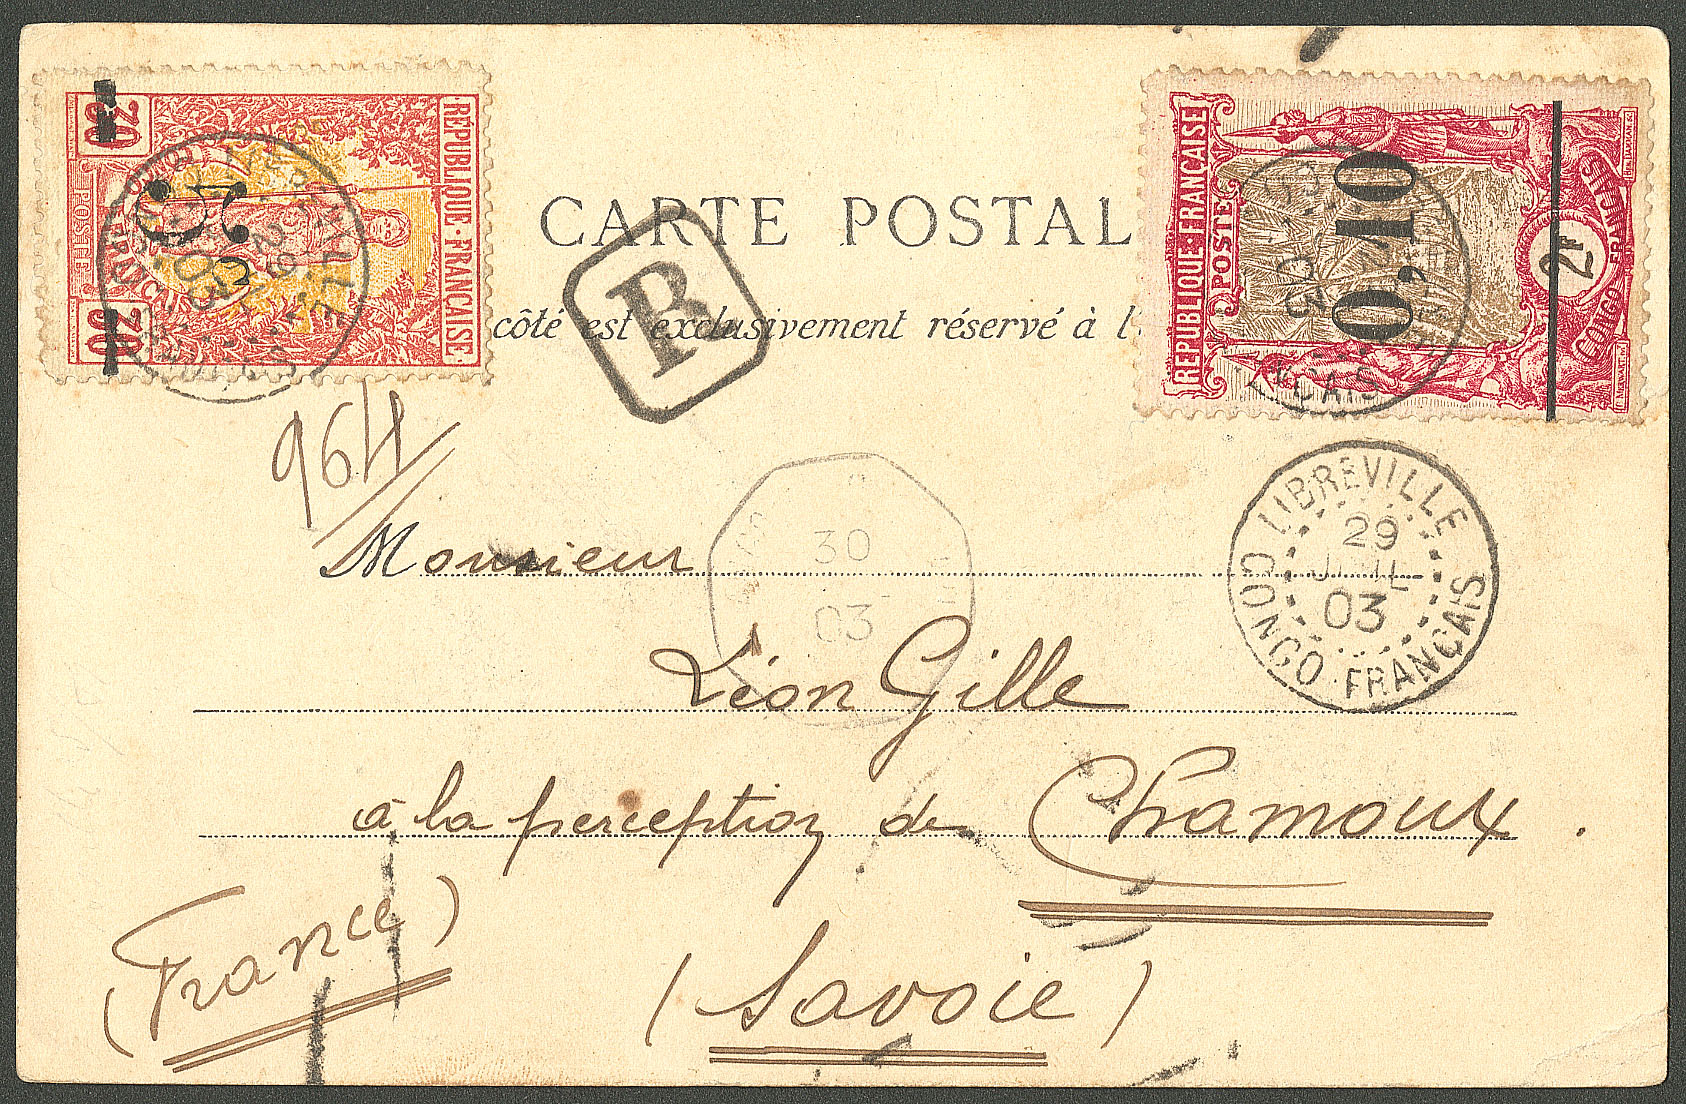 RÉPUBLIQUE·FRANÇAISE
30
30
5c.
CARTE POSTAL
côté est exclusivement réservé à l
R
RÉPUBLIQUE·FRANÇAISE
POSTE
0,10
2F
CONGO FRANÇAIS
964
LIBREVILLE
29
JUIL
03
CONGO·FRANCAIS
30
03
Monsieur
Léon Gille
à la perception de Chamoux.
(France)
(Savoie)